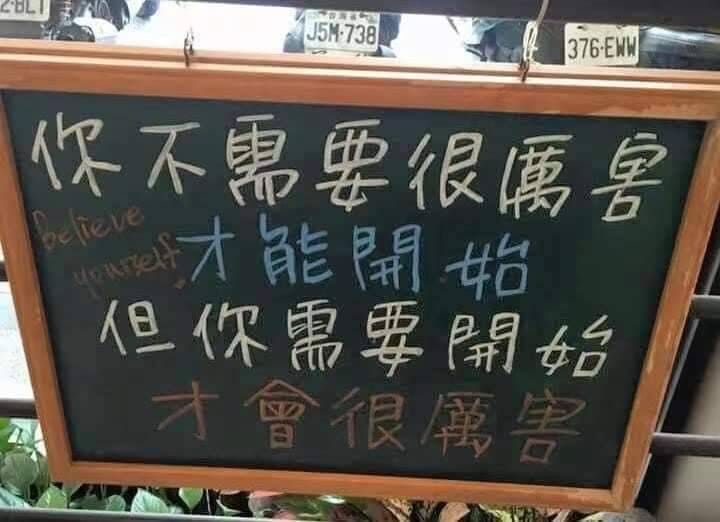 J5M-738
376-EWW
你不需要很厲害
believe
yourself.
才能開始
但你需要開始
才會很厲害